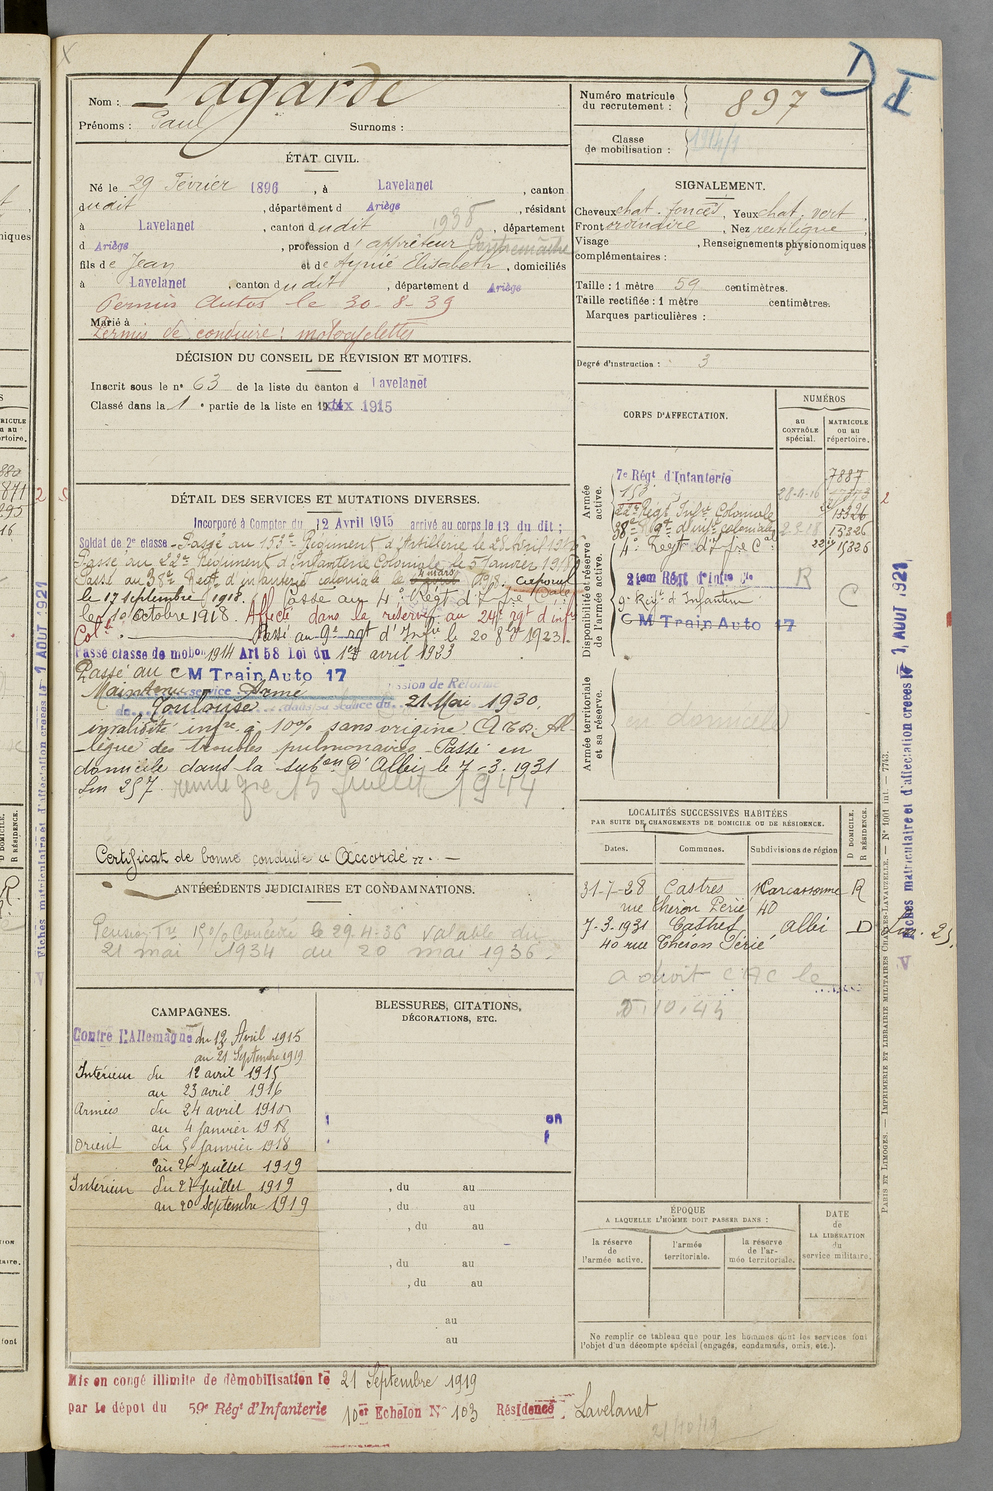 Nom : Lagarde
Prénoms : Paul Surnoms :
Numéro matricule du recrutement : 897
Classe de mobilisation : 1914/1
ÉTAT CIVIL.
Né le 29 Février 1896, à Lavelanet, canton
dudit, département d Ariège, résidant
à Lavelanet, canton dudit 1938, département
d Ariège, profession d'apprêteur Contremaître
fils de Jean et de Aynié Elisabeth, domiciliés
à Lavelanet canton dudit, département d Ariège
Permis Autos le 30-8-39
Marié à
Permis de conduire : motocyclettes
SIGNALEMENT.
Cheveux chat. foncés, Yeux chat. vert,
Front ordinaire, Nez rectiligne,
Visage , Renseignements physionomiques
complémentaires :
Taille : 1 mètre 59 centimètres.
Taille rectifiée : 1 mètre centimètres.
Marques particulières :
Degré d'instruction : 3
DÉCISION DU CONSEIL DE REVISION ET MOTIFS.
Inscrit sous le n° 63 de la liste du canton d Lavelanet
Classé dans la 1e partie de la liste en 1915
DÉTAIL DES SERVICES ET MUTATIONS DIVERSES.
Incorporé à Compter du 12 Avril 1915 arrivé au corps le 13 du dit ;
Soldat de 2e classe - Passé au 153e Régiment d'Artillerie le 28 Avril 1916
Passé au 22e Régiment d'Infanterie Coloniale le 5 Janvier 1918
Passé au 38e Régt d'infanterie coloniale le 4 mars 1918. Caporal
le 17 septembre 1918. Passé au 4e Régt d'Ifie Cale
le 10 Octobre 1918. Affecté dans la réserve au 24e rgt d'infie
Cole. Passé au 9e rgt d'Infie le 20 8bre 1923.
Passé classe de mobon 1914 Art 58 Loi du 1er avril 1923
Passé au C M Train Auto 17
Maintenu service Armé
Toulouse dans sa séance du 21 Mai 1930.
invalidité infre à 10% sans origine.
lègue des troubles pulmonaires - Passé en
domicile dans la subon d'Albi le 7-3-1931
Lm 257. 15 Juillet 1944
Certificat de bonne conduite "Accordé".
ANTÉCÉDENTS JUDICIAIRES ET CONDAMNATIONS.
Pension Tre 10% Concédée le 29.4.36 valable du
21 mai 1934 au 20 mai 1936
CAMPAGNES.
Contre l'Allemagne du 12 Avril 1915
au 21 Septembre 1919
Intérieur du 12 avril 1915
au 23 avril 1916
Armées du 24 avril 1916
au 4 janvier 1918
Orient du 5 Janvier 1918
au 26 juillet 1919
Intérieur du 27 juillet 1919
au 20 Septembre 1919
BLESSURES, CITATIONS,
DÉCORATIONS, ETC.
, du au
, du au
, du au
, du au
, du au
au
au
CORPS D'AFFECTATION.
NUMÉROS
au CONTRÔLE spécial.
MATRICULE OU AU répertoire.
Armée active.
7e Régt d'Infanterie 7887
153 28-4-16
22e Régt Infie Coloniale 15326
38e Rgt d'infie coloniale 2.2.18 15326
Disponibilité et réserve de l'armée active.
4e Régt d'Ifie Cale 15326
R
9e Régt d'Infanterie C
C M Train Auto 17
Armée territoriale et sa réserve.
en domicile
LOCALITÉS SUCCESSIVES HABITÉES
PAR SUITE DE CHANGEMENTS DE DOMICILE OU DE RÉSIDENCE.
Dates. Communes. Subdivisions de région D DOMICILE. R RÉSIDENCE.
31-7-28 Castres Carcassonne R
rue Théron Périé 40
7-3-1931 Castres Albi D
40 rue Théron Périé
a droit C AC le
5.10.43
ÉPOQUE
A LAQUELLE L'HOMME DOIT PASSER DANS :
la réserve de l'armée active.
l'armée territoriale.
la réserve de l'armée territoriale.
DATE de LA LIBÉRATION du service militaire.
Ne remplir ce tableau que pour les hommes dont les services font
l'objet d'un décompte spécial (engagés, condamnés, omis, etc.).
Mis en congé illimité de démobilisation le 21 Septembre 1919
par le dépôt du 59e Régt d'Infanterie 10er Echelon N° 103 Résidence : Lavelanet
21/10/19
PARIS ET LIMOGES. — IMPRIMERIE ET LIBRAIRIE MILITAIRES CHARLES-LAVAUZELLE. — N° 1001 int. — 7743.
Fiches matriculaire et d'affectation créées le 1 AOUT 1921